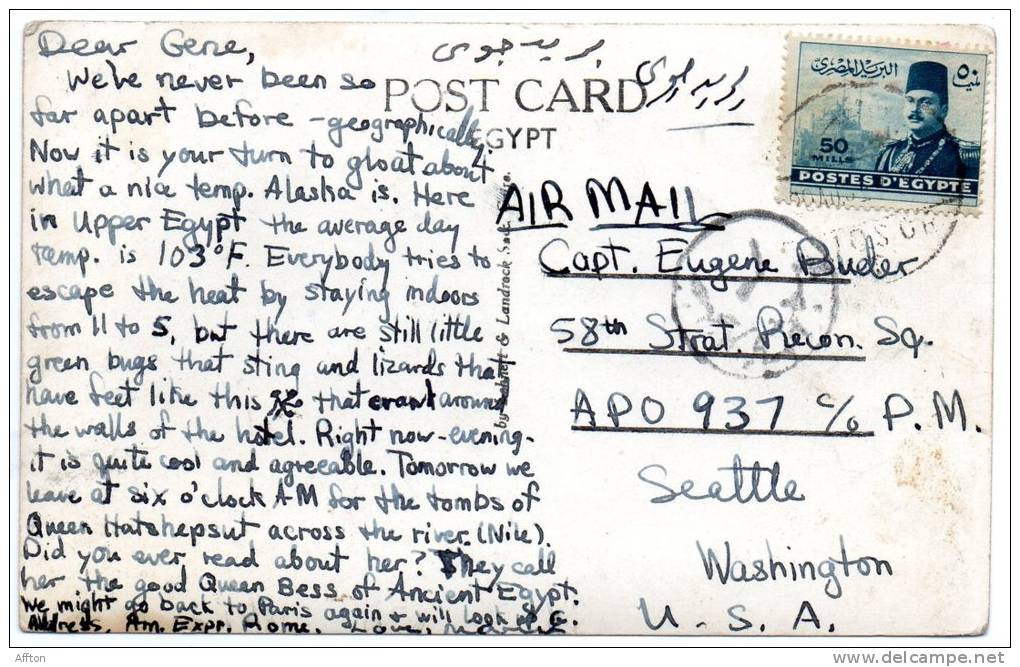 Dear Gene,
We've never been so
far apart before - geographically.
Now it is your turn to gloat about
what a nice temp. Alaska is. Here
in Upper Egypt the average day
temp. is 103°F. Everybody tries to
escape the heat by staying indoors
from 11 to 5, but there are still little
green bugs that sting and lizards that
have feet like this that crawl around
the walls of the hotel. Right now - evening -
it is quite cool and agreeable. Tomorrow we
leave at six o'clock AM for the tombs of
Queen Hatshepsut across the river. (Nile).
Did you ever read about her? They call
her the good Queen Bess of Ancient Egypt.
We might go back to Paris again + will look up G.
Address, Am. Expr. Rome. Love,
بريد جوى
POST CARD
EGYPT
& Landrock
البريد المصرى
٥٠
50
MILLS
POSTES D'EGYPTE
AIR MAIL
Capt. Eugene Buder
58th Strat. Recon. Sq.
APO 937 c/o P.M.
Seattle
Washington
U. S. A.
Afton
delcampe.net